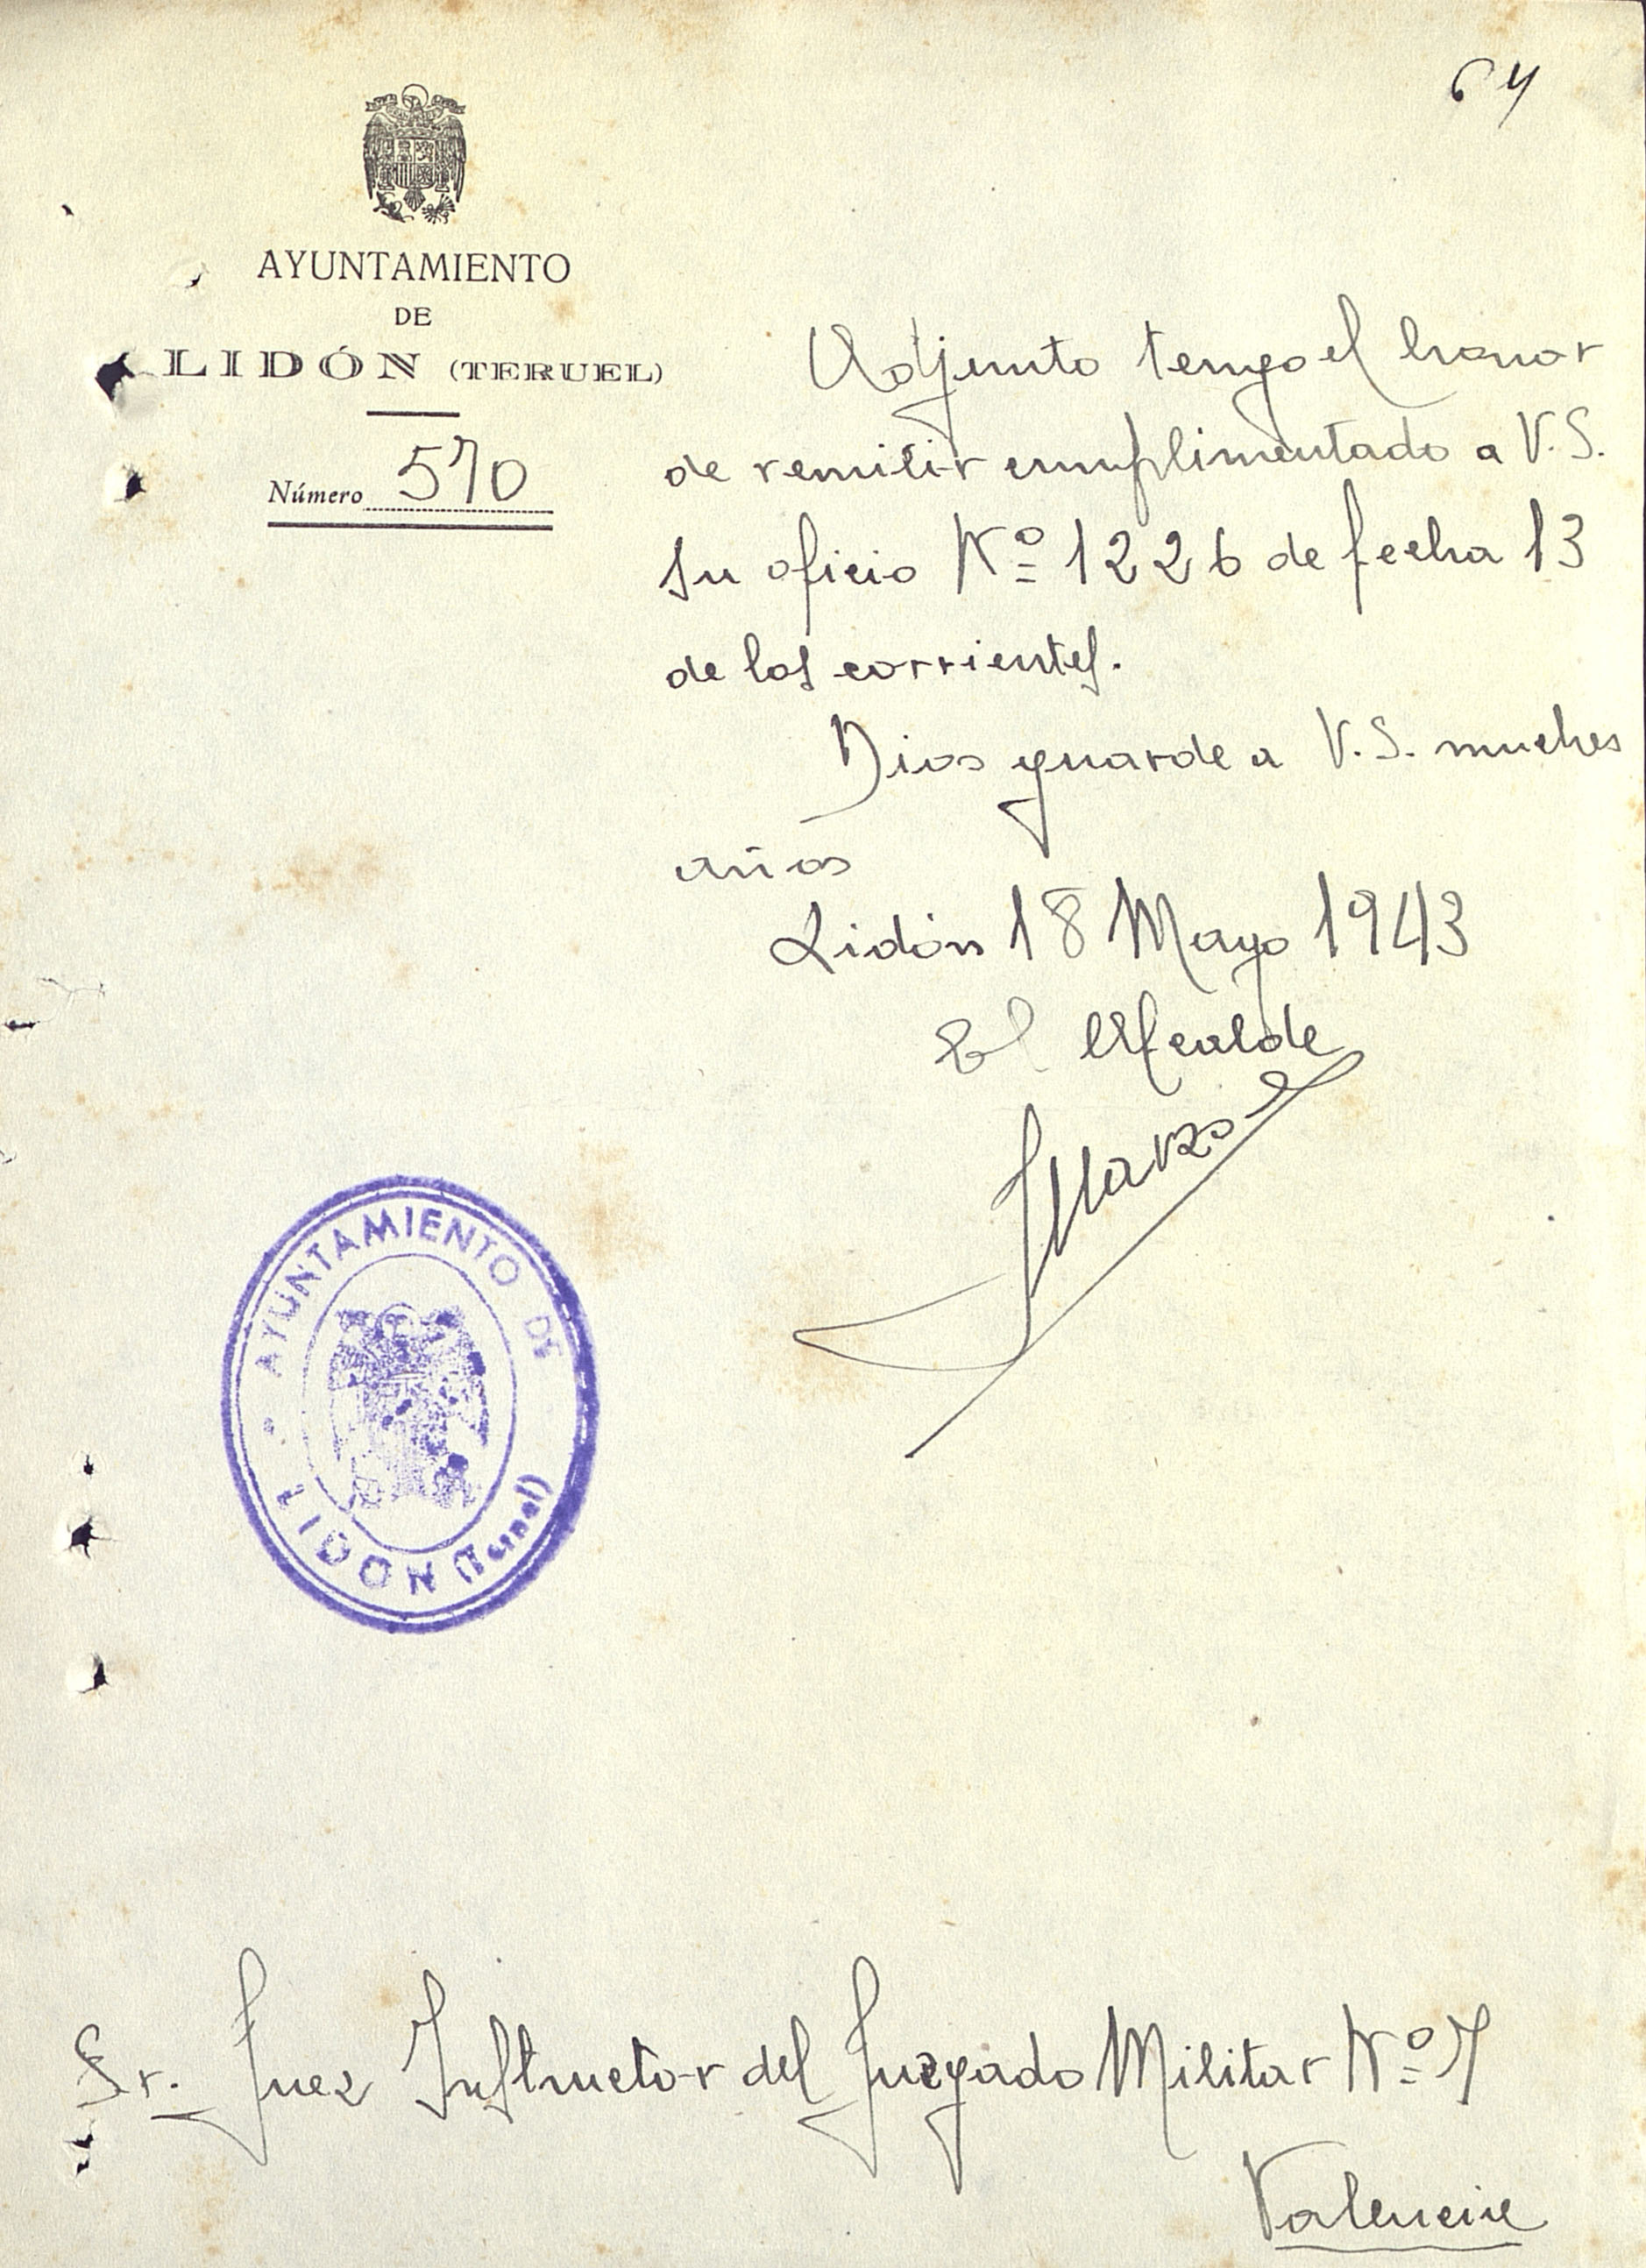 64
AYUNTAMIENTO
DE
LIDÓN (TERUEL)
Número 570
Adjunto tengo el honor
de remitir cumplimentado a V.S.
su oficio Nº 1226 de fecha 13
de los corrientes.
Dios guarde a V.S. muchos
años
Lidón 18 Mayo 1943
El Alcalde
AYUNTAMIENTO DE
LIDON (Teruel)
Sr. Juez Instructor del Juzgado Militar Nº 7
Valencia